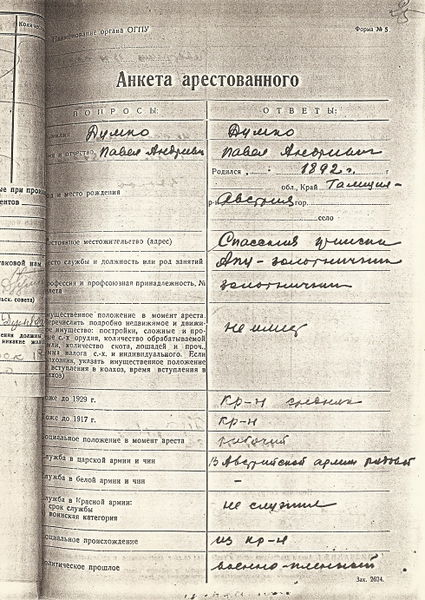 Наименование органа ОГПУ
Форма № 5
Анкета арестованного
ВОПРОСЫ: ОТВЕТЫ:
Думко Думко
и отчество Павел Андреевич Павел Андреевич
Родился 1892 г
од и место рождения обл., Край Галиция-
Австрия гор.
село
остоянное местожительство (адрес) Спасский
есто службы и должность или род занятий золотничник
рофессия и профсоюзная принадлежность, №
илета золотничник
мущественное положение в момент ареста.
еречислить подробно недвижимое и движи-
ое имущество: постройки, сложные и про-
ые с.-х орудия, количество обрабатываемой
мли, количество скота, лошадей и проч.,
мма налога с.-х. и индивидуального. Если
олхозник, указать имущественное положение
вступления в колхоз, время вступления в
лхоз)
не имеет
оже до 1929 г. кр-н средняк
оже до 1917 г. кр-н
оциальное положение в момент ареста рабочий
ужба в царской армии и чин В Австрийской армии рядовой
ужба в белой армии и чин -
лужба в Красной армии:
срок службы
воинская категория
не служил
оциальное происхождение из кр-н
олитическое прошлое военно-пленный
Зак. 2624.